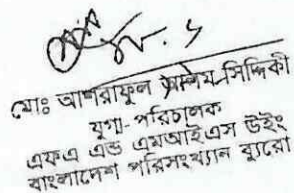 মোঃ আশরাফুল আলম সিদ্দিকী
যুগ্ম-পরিচালক
এফএ এন্ড এমআইএস উইং
বাংলাদেশ পরিসংখ্যান ব্যুরো